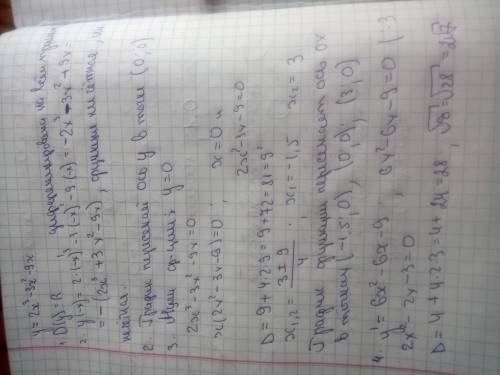 y=2x³-3x²-9x
1. D(y)=R дифференцирована на всей
2. y(-x)=2·(-x)³-3(-x)²-9(-x)=-2x³-3x²+9x=
=-(2x³+3x²-9x), функция ни чётная, ни
нечетная.
2. График пересекает ось y в точке (0;0)
3. Нули функции: y=0
2x³-3x²-9x=0
x(2x²-3x-9)=0; x=0 и
2x²-3x-9=0
D=9+4·2·9=9+72=81=9²
x₁,₂=(3±9)/4; x₁=-1,5 x₂=3
График функции пересекает ось ox
в точках (-1,5;0), (0;0); (3;0)
4. y'=6x²-6x-9, 6x²-6x-9=0 |:3
2x²-2x-3=0
D=4+4·2·3=4+24=28, √D=√28=2√7